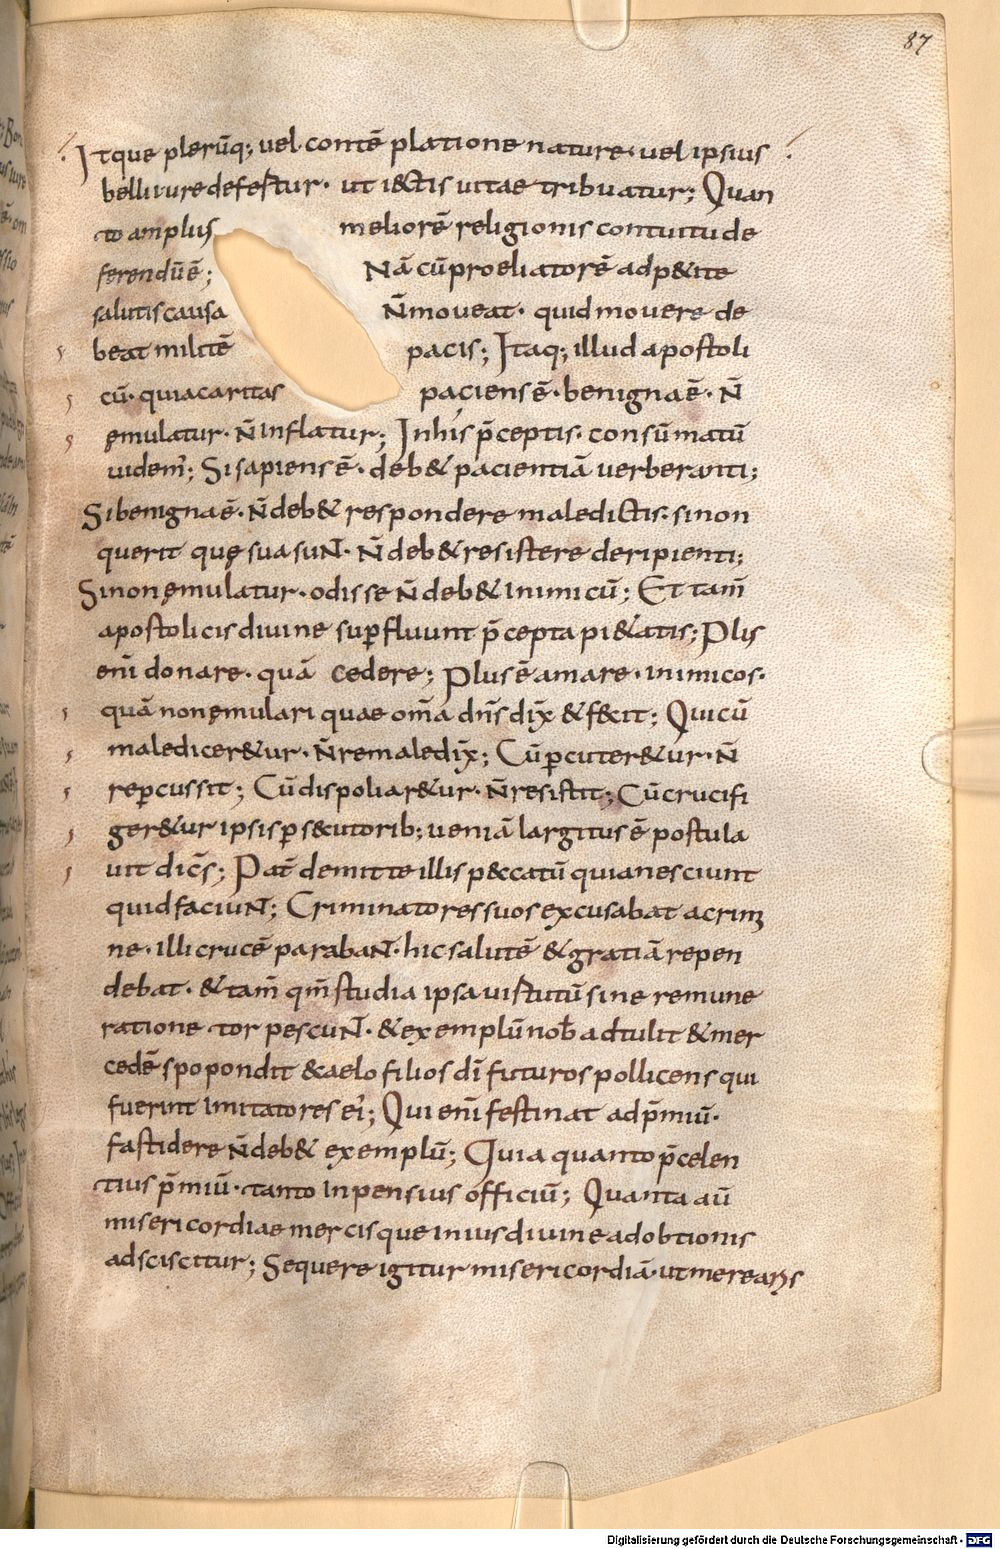 87
Itque plerūq; uel contēplatione nature· uel ipsius
belli iure defertur· ut uictis uitae tribuatur; Quan
to amplius meliorē religionis contuitu de
ferendū ē; Nā cū proeliatorē ad p&ite
salutis causa N̄ moueat· quid mouere de
beat militē pacis; Itaq; illud apostoli
cū· quia caritas paciens ē· benigna ē· N̄
ęmulatur· N̄ inflatur; In his p̄ceptis· consūmatū
uidem̄; Si sapiens ē· deb& pacientiā uerberanti;
Si benigna ē· N̄ deb& respondere maledictis· si non
querit quę sua suNt· N̄ deb& resistere deripienti;
Si non ęmulatur· odisse N̄ deb& inimicū; Et tam̄
apostolicis diuine sup̄fluunt p̄cepta pi&atis; Plis
eni̅ donare· quā cedere; Plus ē amare· inimicos·
quā non ęmulari quae om̄a dn̄s dix̄ & fecit; Qui cū
maledicer&ur· N̄ remaledix̄; Cū p̄cuter&ur· N̄
rep̄cussit; Cū dispoliar&ur· N̄ resistit; Cū crucifi
ger&ur ipsis p̄s&utorib; ueniā largitus ē postula
uit dic̄s; Pat̄ demitte illis p&catū quia nesciunt
quid faciuNt; Criminatores suos excusabat a crimi
ne· illi crucē parabaNt· hic salutē & gratiā repen
debat· & tam̄ qm̄ studia ipsa uirtutū sine remune
ratione torpescuNt· & exemplū nob̄ adtulit & mer
cedē spopondit & caelo filios di̅ futuros pollicens qui
fuerint imitatores ei̅; Qui eni̅ festinat ad p̄miū·
fastidere N̄ deb& exemplū; Quia quanto p̄celen
tius p̄miū· tanto inpensius officiū; Quanta aū
misericordiae mercisque in ius diuine adobtionis
adsciscitur; Sequere igitur misericordiā· ut merearis
Digitalisierung gefördert durch die Deutsche Forschungsgemeinschaft · DFG